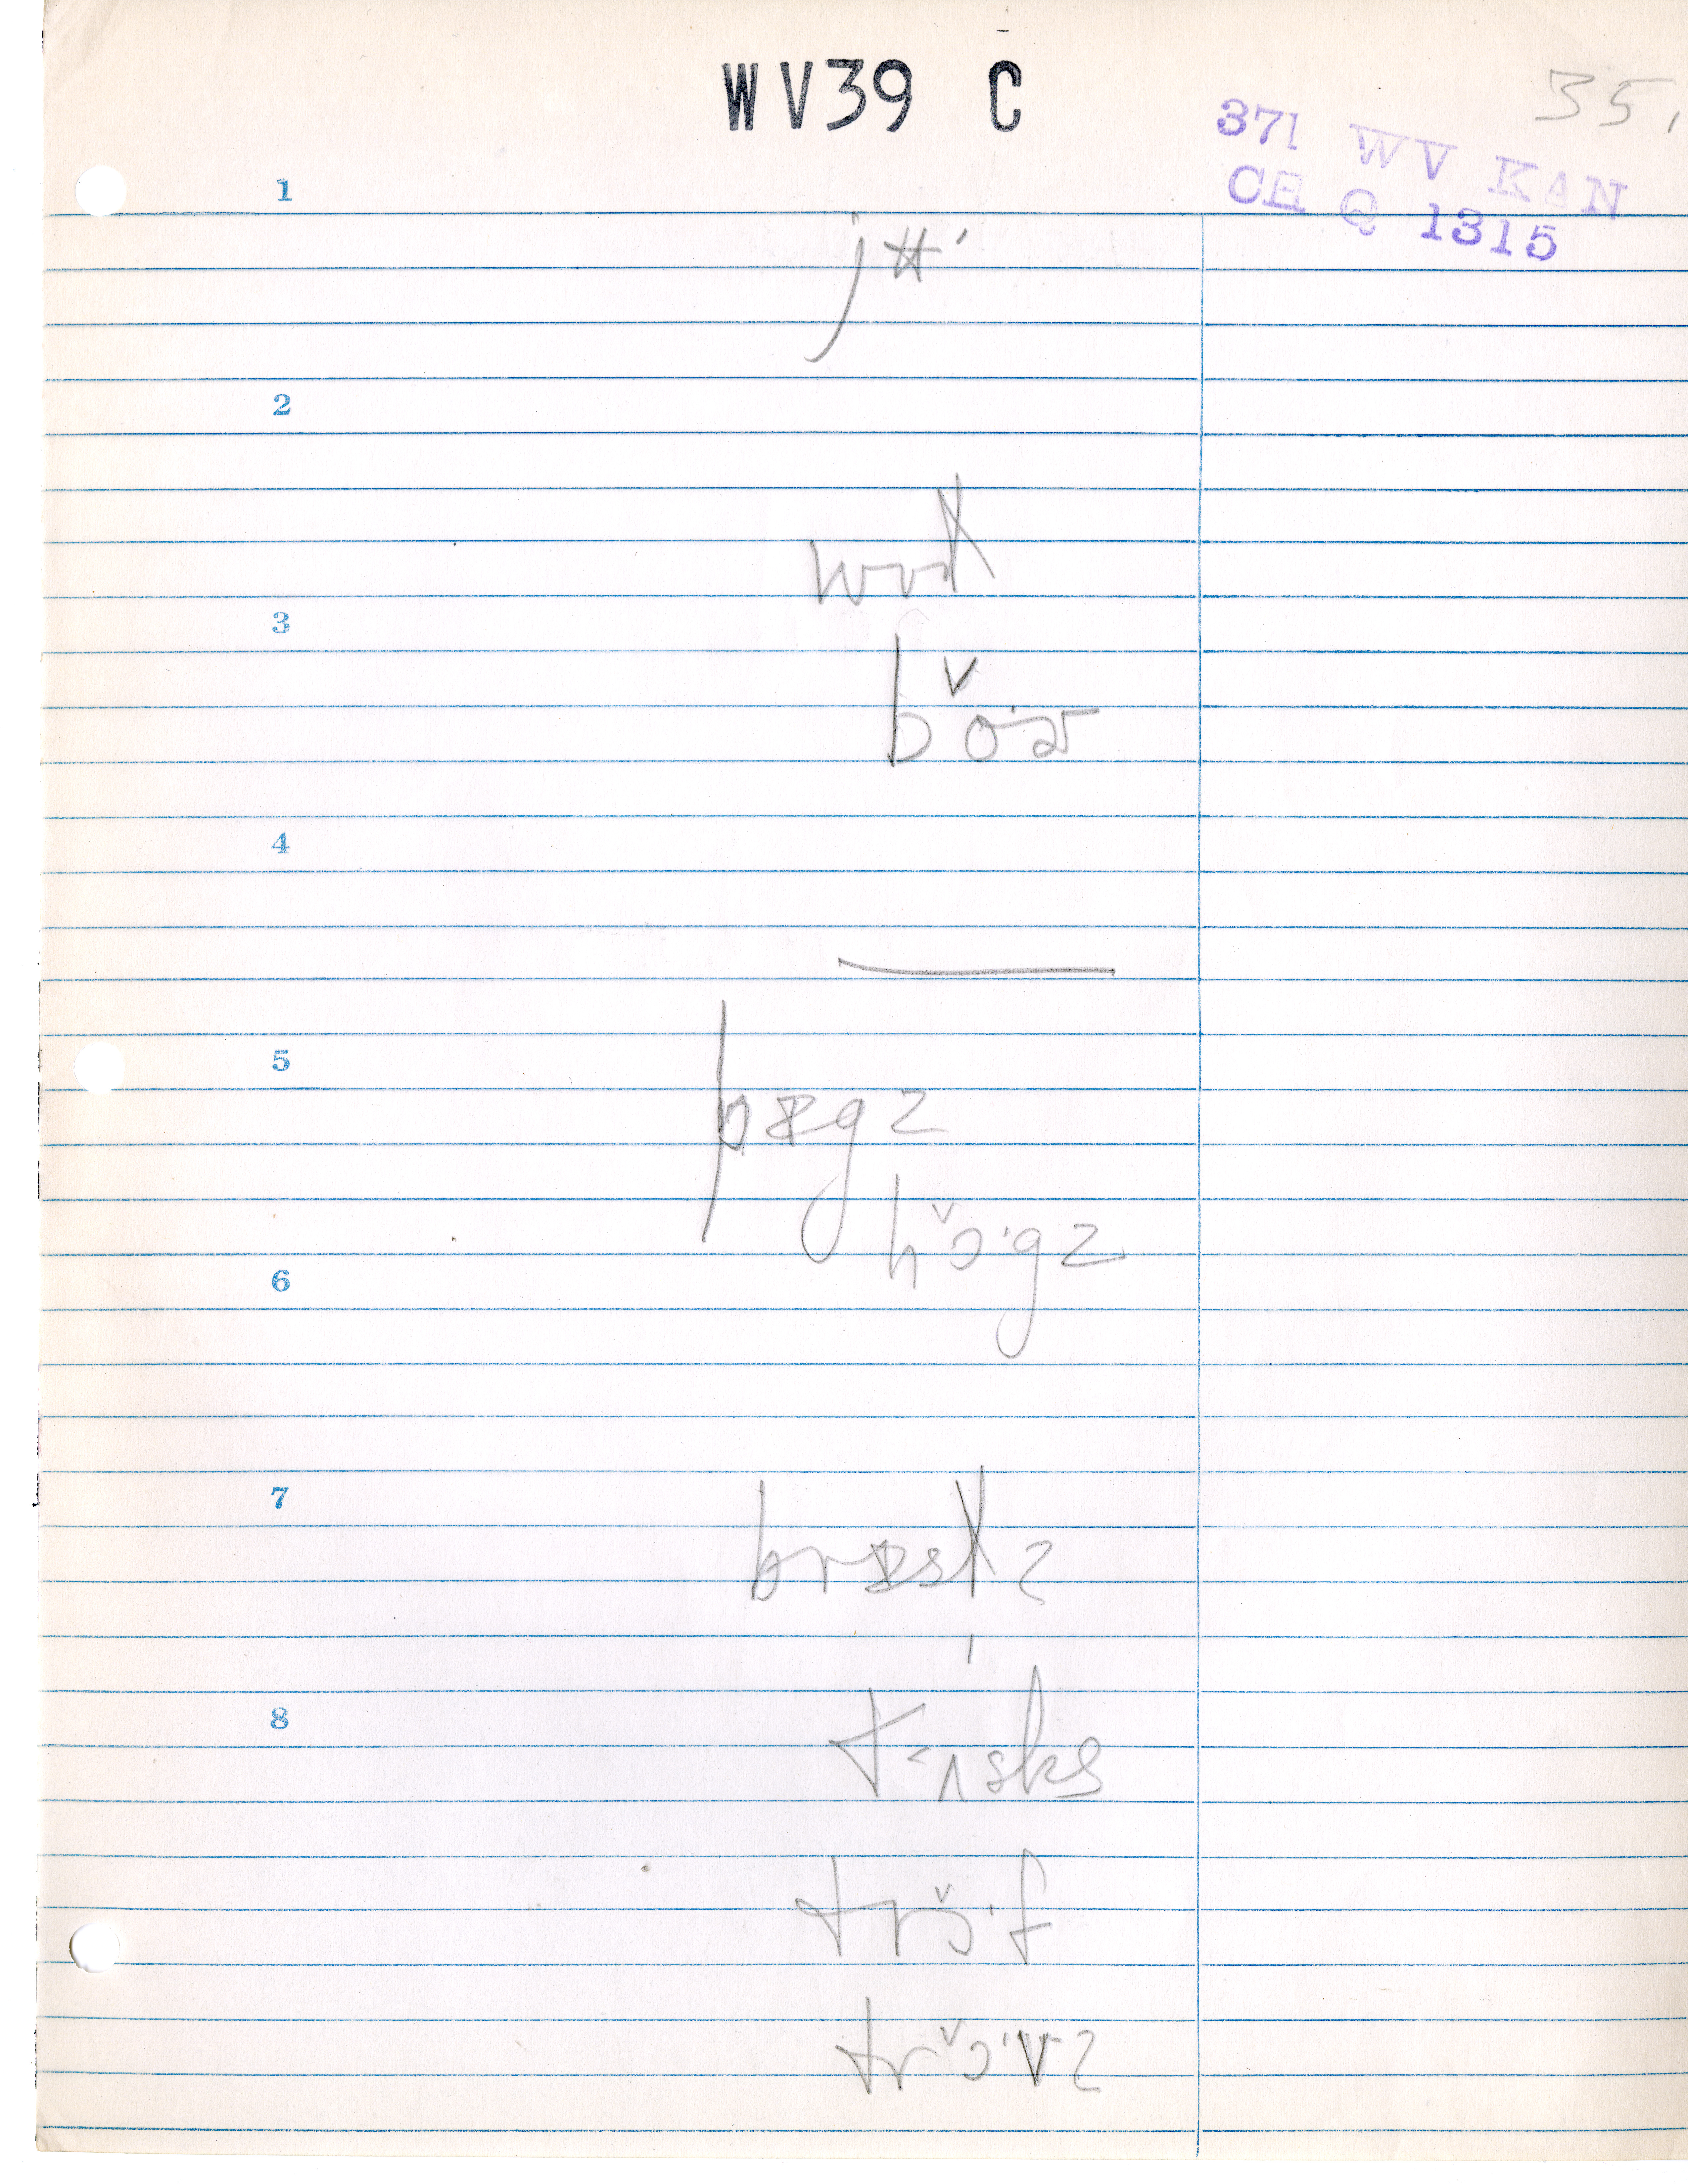 WV39 C
35.
371 WV KAN
CH Q 1315
1
2
3
bǒ·ɚ
4
5
pɪgz
hɔ̌·gz
6
7
brɪstz
8
t<ʌsks
trɔ̌·f
trɔ̌·vz